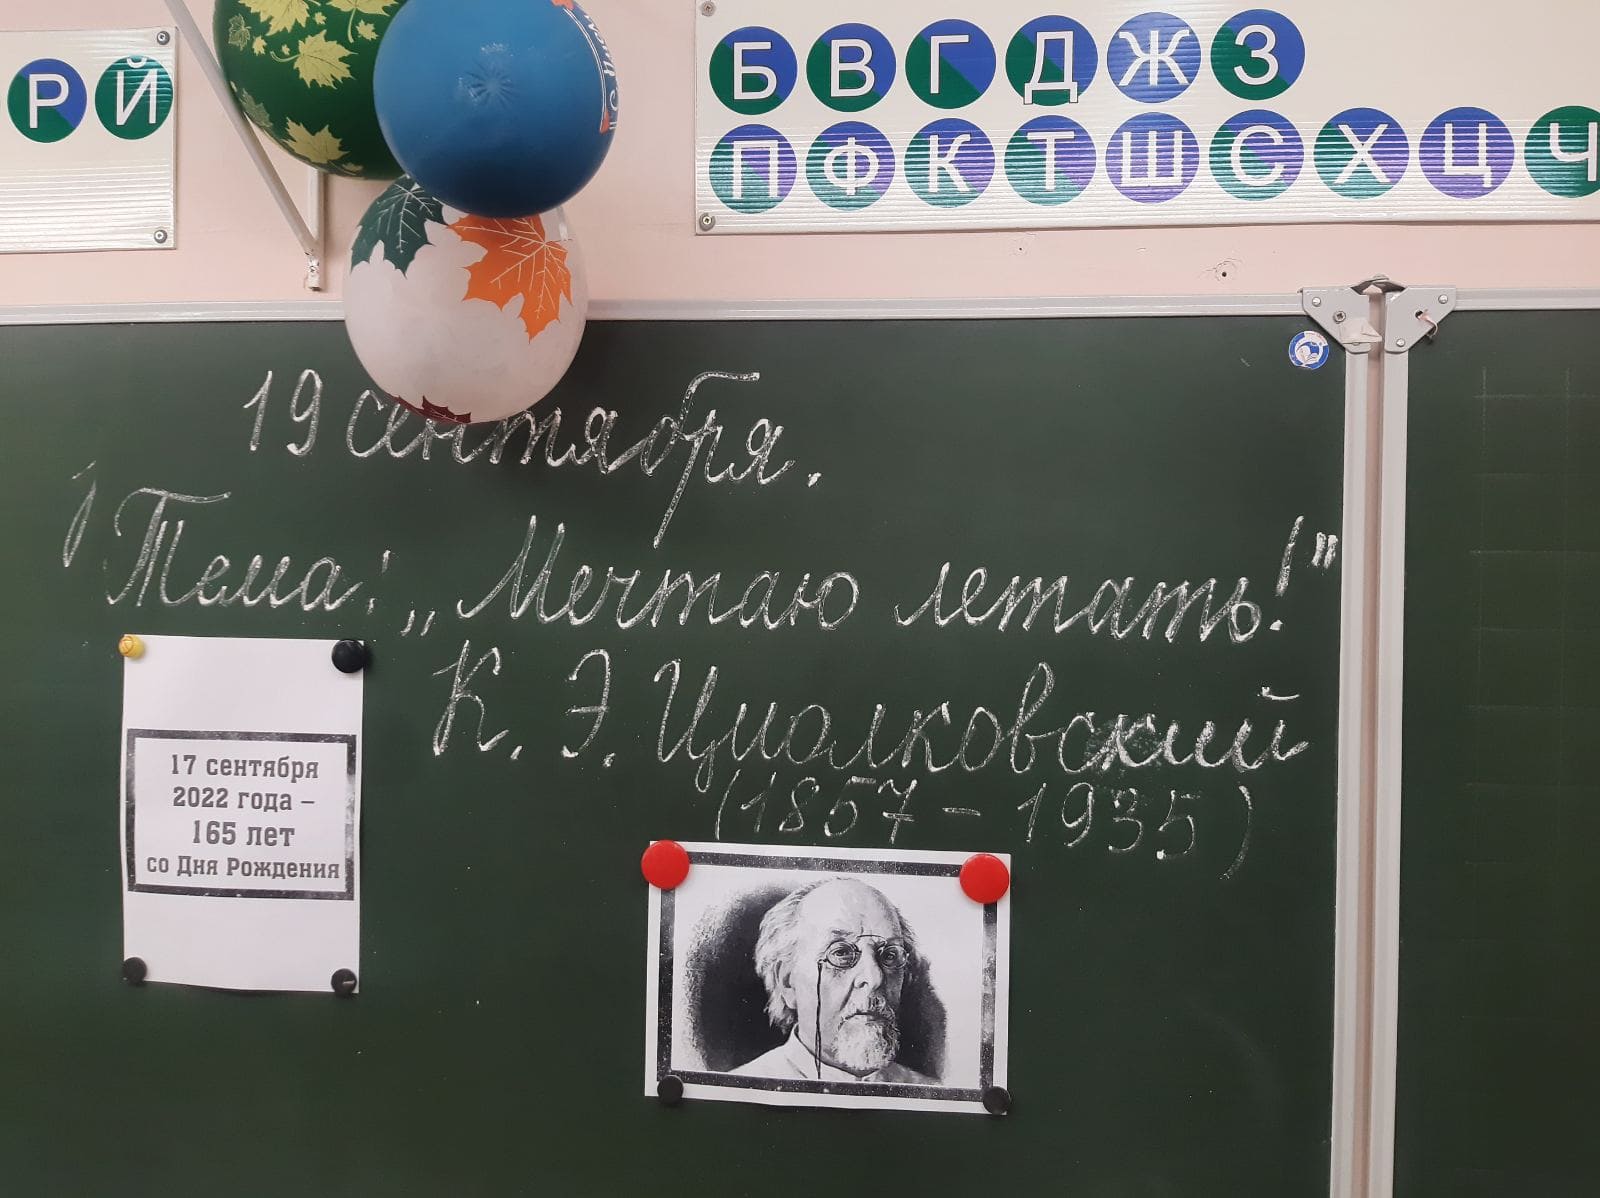 Р Й
Б В Г Д Ж З
П Ф К Т Ш С Х Ц Ч
19 сентября.
Тема: „Мечтаю летать!"
К. Э. Циолковский
(1857 - 1935)
17 сентября
2022 года –
165 лет
со Дня Рождения